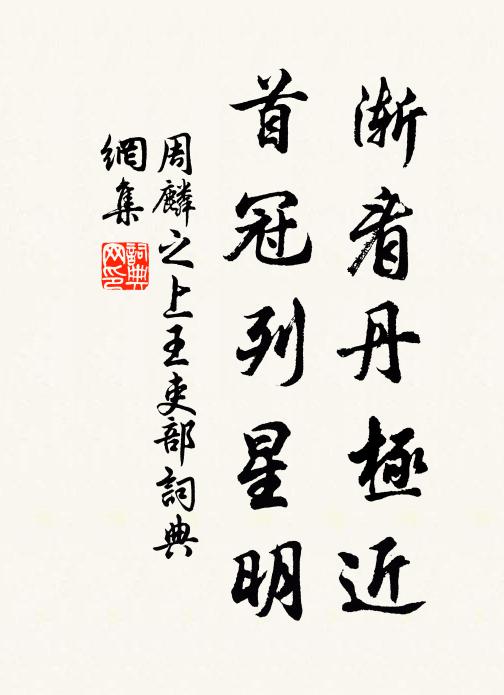 漸看丹極近
首冠列星明
周麟之上王吏部詞典
網集
詞典
網印